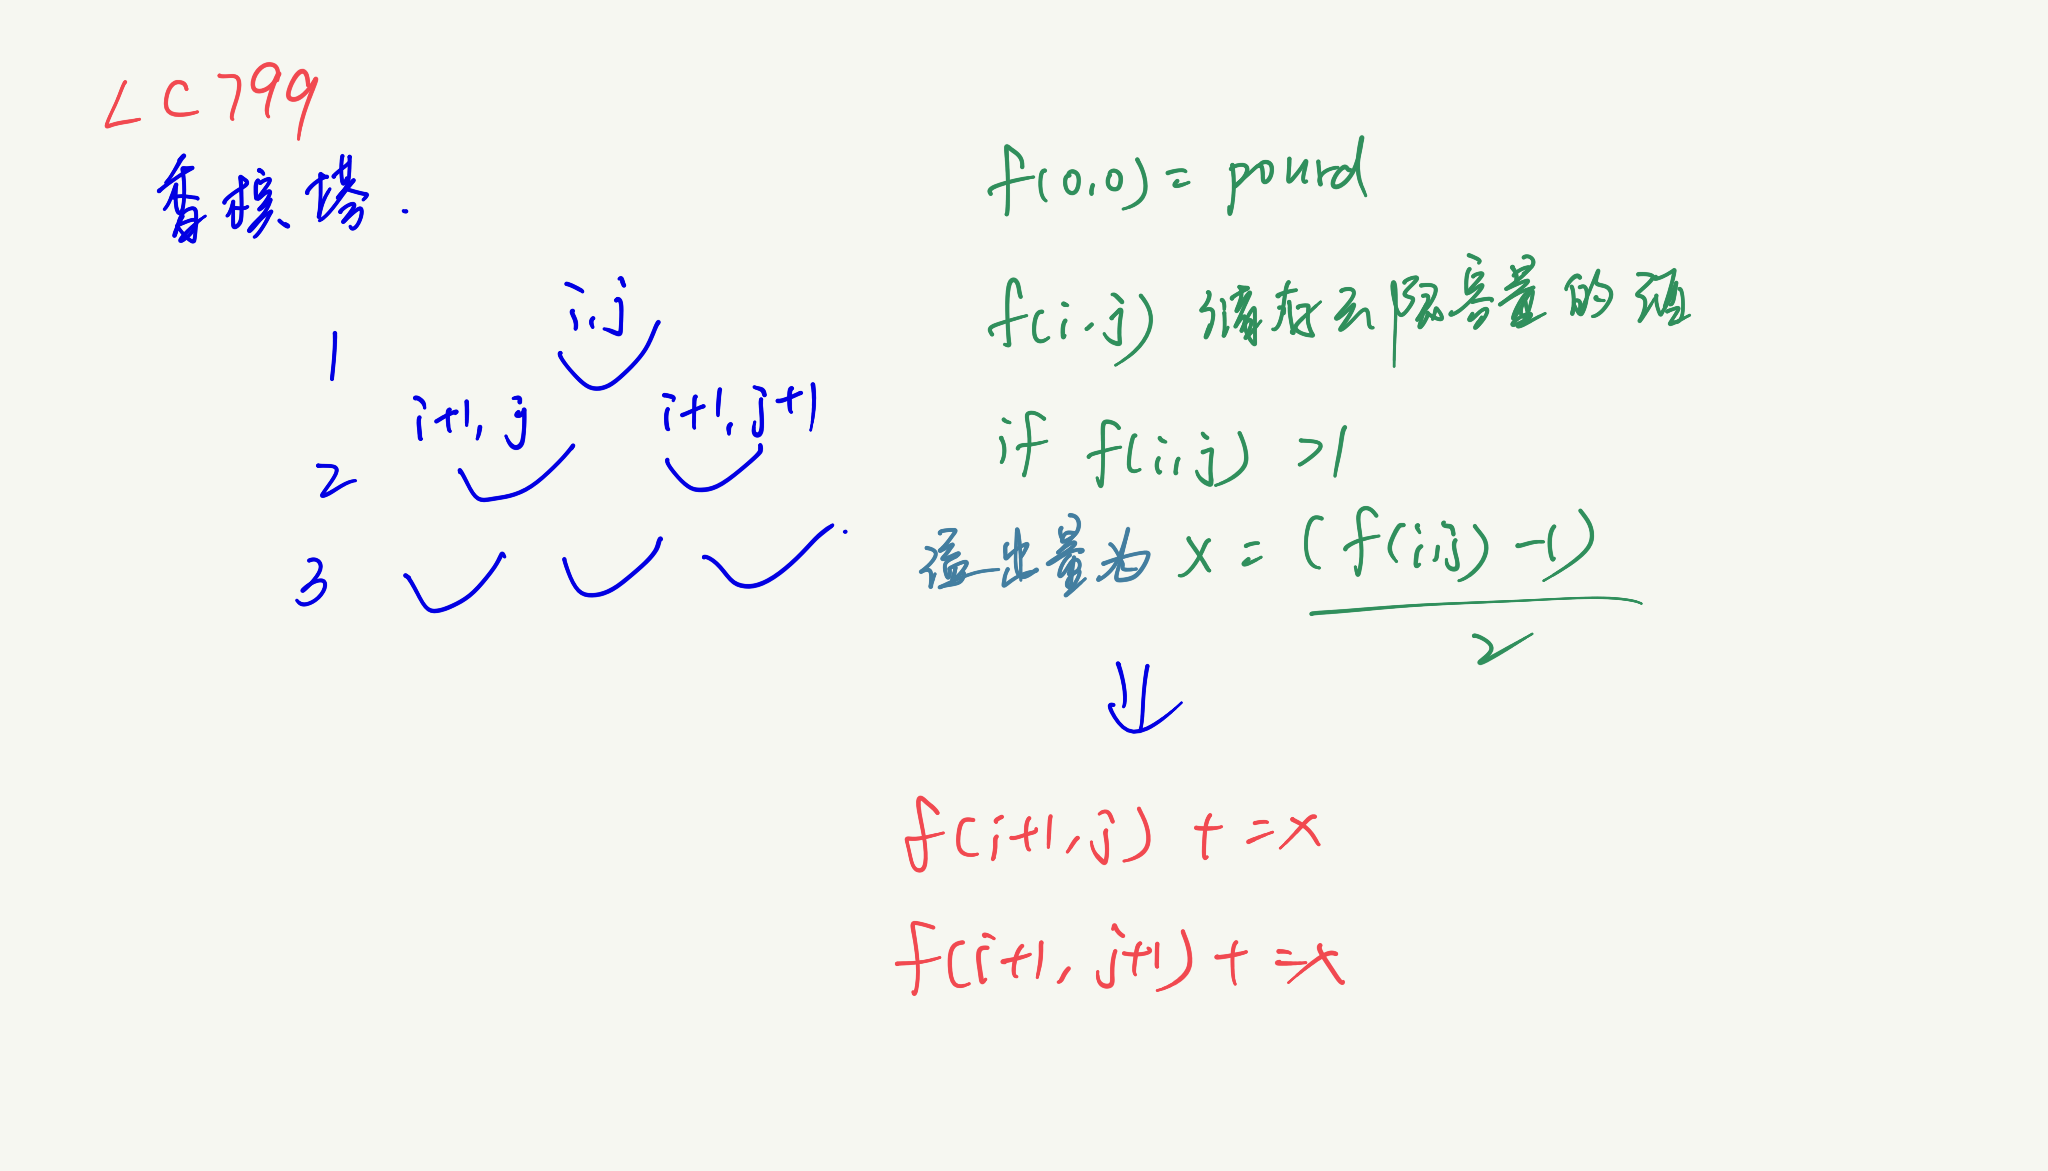 LC799
香槟塔.
i,j
1
i+1, j
i+1, j+1
2
3
f(0,0) = pourd
f(i,j) 储存无限容量的酒
if f(i,j) >1
溢出量为 x = (f(i,j) -1)
2
f(i+1,j) + =x
f(i+1, j+1) + =x